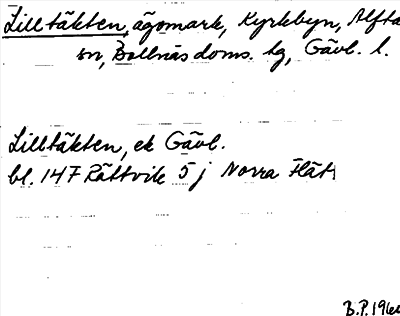 Lilltäkten, ägomark, Kyrkbyn, Alfta
sn, Bollnäs doms. tg, Gävl. l.
Lilltäkten, ek Gävl.
bl. 147 Rättvik 5 j Norra Flät
B.P. 196